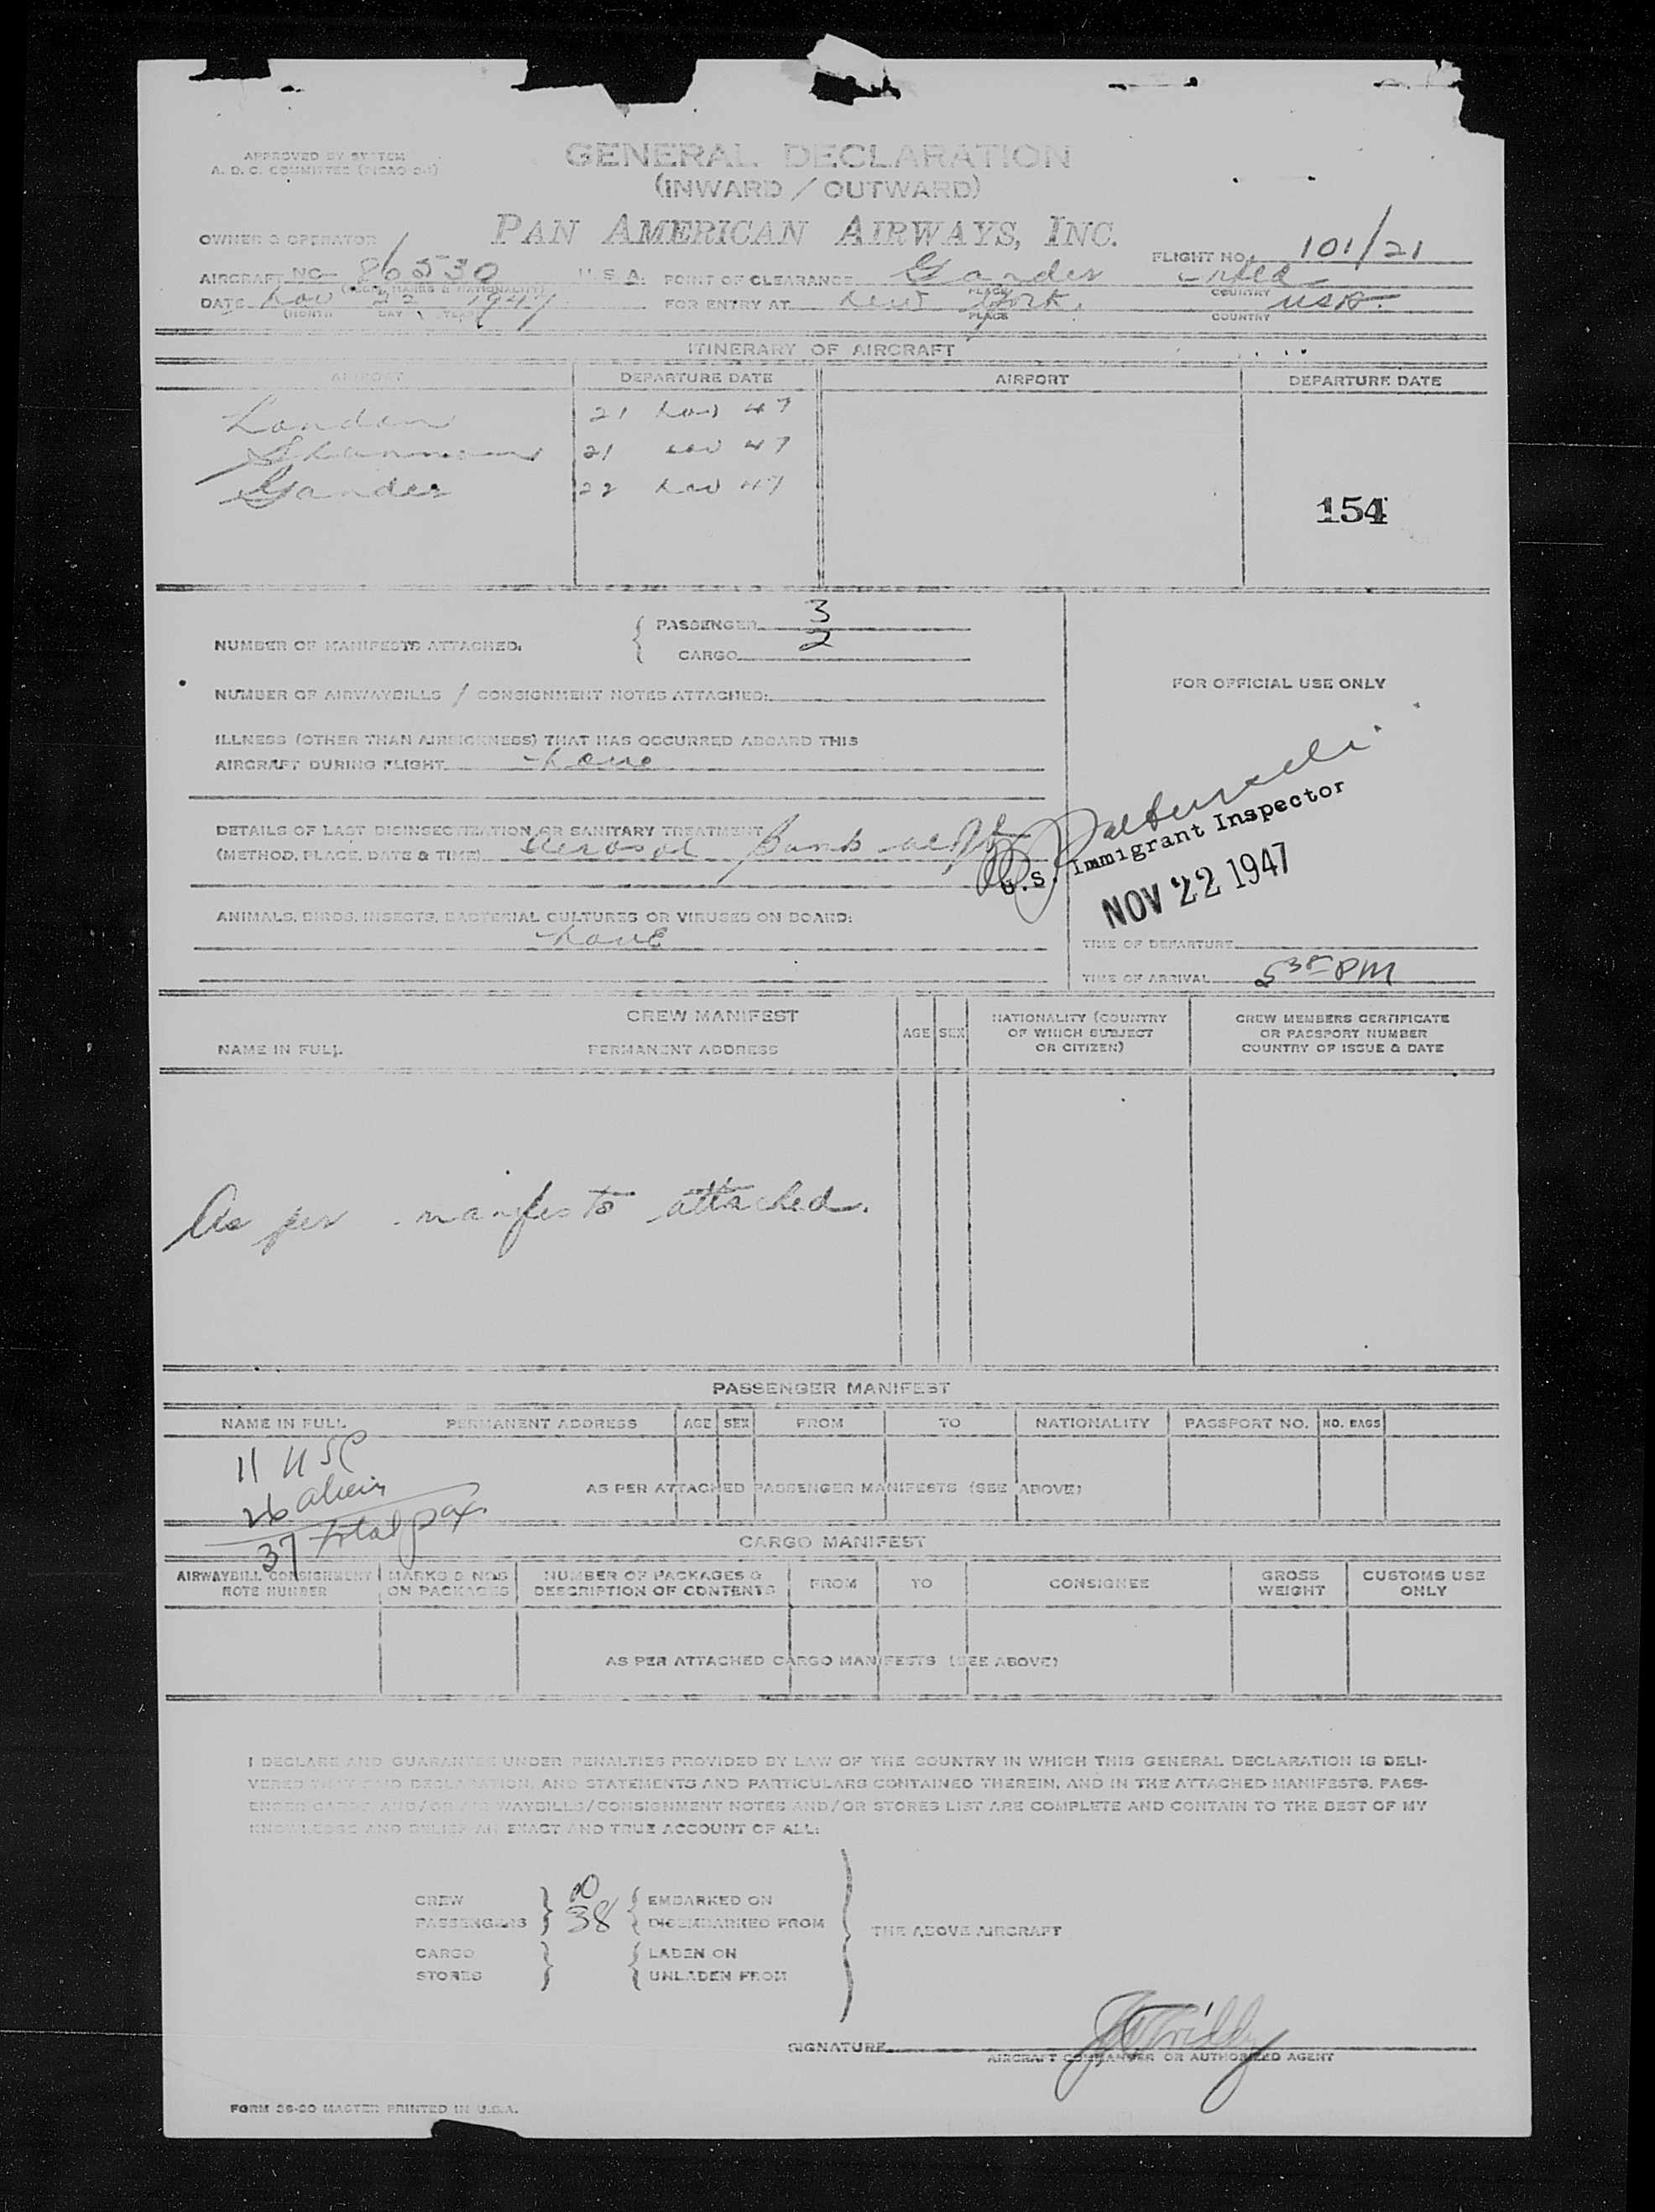 APPROVED BY SYSTEM
A. D. C. COMMITTEE (PICAO 2-1)
GENERAL DECLARATION
(INWARD / OUTWARD)
PAN AMERICAN AIRWAYS, INC.
OWNER & OPERATOR
FLIGHT NO. 101/21
AIRCRAFT NC- 86530 U. S. A. POINT OF CLEARANCE Gander Nfld
(REG. MARKS & NATIONALITY) PLACE COUNTRY
DATE Nov 22 1947 FOR ENTRY AT New York, USA.
(MONTH DAY YEAR) PLACE COUNTRY
ITINERARY OF AIRCRAFT
AIRPORT DEPARTURE DATE AIRPORT DEPARTURE DATE
London 21 Nov 47
Shannon 21 Nov 47
Gander 22 Nov 47
154
NUMBER OF MANIFESTS ATTACHED. PASSENGER 3
CARGO 2
FOR OFFICIAL USE ONLY
NUMBER OF AIRWAYBILLS / CONSIGNMENT NOTES ATTACHED:
ILLNESS (OTHER THAN AIRSICKNESS) THAT HAS OCCURRED ABOARD THIS
AIRCRAFT DURING FLIGHT None
DETAILS OF LAST DISINSECTIZATION OR SANITARY TREATMENT
(METHOD, PLACE, DATE & TIME) Aerosol Bomb
U.S. Immigrant Inspector
NOV 22 1947
ANIMALS, BIRDS, INSECTS, BACTERIAL CULTURES OR VIRUSES ON BOARD:
None
TIME OF DEPARTURE
TIME OF ARRIVAL 5 38 PM
CREW MANIFEST
NAME IN FULL PERMANENT ADDRESS AGE SEX NATIONALITY (COUNTRY OF WHICH SUBJECT OR CITIZEN) CREW MEMBERS CERTIFICATE OR PASSPORT NUMBER COUNTRY OF ISSUE & DATE
As per manifests attached.
PASSENGER MANIFEST
NAME IN FULL PERMANENT ADDRESS AGE SEX FROM TO NATIONALITY PASSPORT NO. NO. BAGS
11 USC
26 alien
37 total pax
AS PER ATTACHED PASSENGER MANIFESTS (SEE ABOVE)
CARGO MANIFEST
AIRWAYBILL CONSIGNMENT NOTE NUMBER MARKS & NOS ON PACKAGES NUMBER OF PACKAGES & DESCRIPTION OF CONTENTS FROM TO CONSIGNEE GROSS WEIGHT CUSTOMS USE ONLY
AS PER ATTACHED CARGO MANIFESTS (SEE ABOVE)
I DECLARE AND GUARANTEE UNDER PENALTIES PROVIDED BY LAW OF THE COUNTRY IN WHICH THIS GENERAL DECLARATION IS DELI-
VERED THAT SAID DECLARATION, AND STATEMENTS AND PARTICULARS CONTAINED THEREIN, AND IN THE ATTACHED MANIFESTS, PASS-
ENGER CARDS AND/OR AIRWAYBILLS/CONSIGNMENT NOTES AND/OR STORES LIST ARE COMPLETE AND CONTAIN TO THE BEST OF MY
KNOWLEDGE AND BELIEF AN EXACT AND TRUE ACCOUNT OF ALL:
CREW 10 EMBARKED ON
PASSENGERS 38 DISEMBARKED FROM
THE ABOVE AIRCRAFT
CARGO LADEN ON
STORES UNLADEN FROM
SIGNATURE
AIRCRAFT COMMANDER OR AUTHORIZED AGENT
FORM 36-20 MASTER PRINTED IN U.S.A.